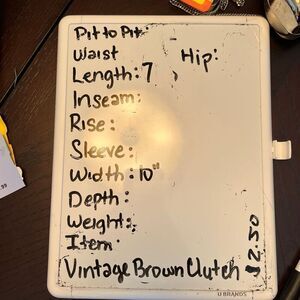 Pit to Pit:
Waist
Hip:
Length: 7
Inseam:
Rise:
Sleeve:
Width: 10"
Depth:
Weight:
Item:
Vintage Brown Clutch
12.50
U BRANDS
.99